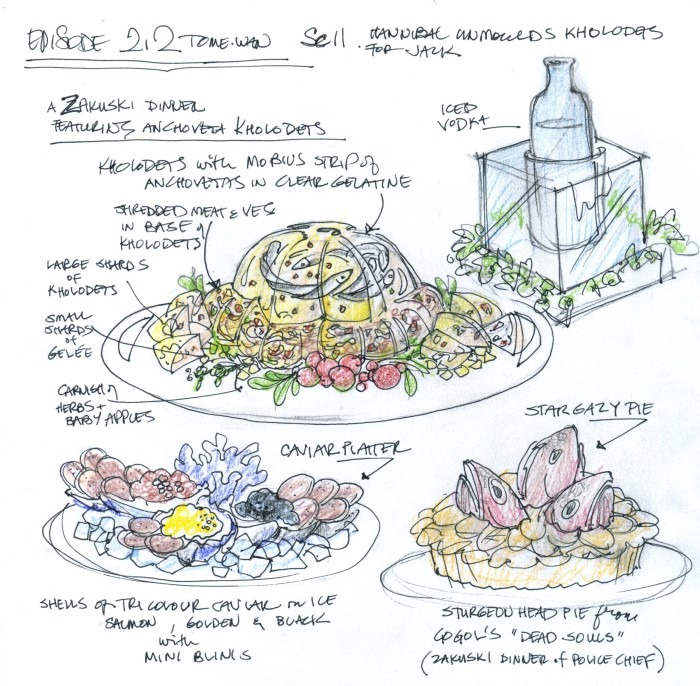 EPISODE 2.12 TOME-WAN SC 11 HANNIBAL UNMOULDS KHOLODETS
FOR JACK
A ZAKUSKI DINNER
FEATURING ANCHOVETA KHOLODETS
ICED
VODKA
KHOLODETS with MOBIUS STRIP of
ANCHOVETAS IN CLEAR GELATINE
SHREDDED MEAT & VEG
IN BASE of
KHOLODETS
LARGE SHARDS
OF
KHOLODETS
SMALL
SHARDS
of
GELÉE
GARNISH of
HERBS +
BABY APPLES
CAVIAR PLATTER
STARGAZY PIE
SHELLS of TRICOLOUR CAVIAR on ICE
SALMON, GOLDEN & BLACK
with
MINI BLINIS
STURGEON HEAD PIE from
GOGOL'S "DEAD SOULS"
(ZAKUSKI DINNER of POLICE CHIEF)